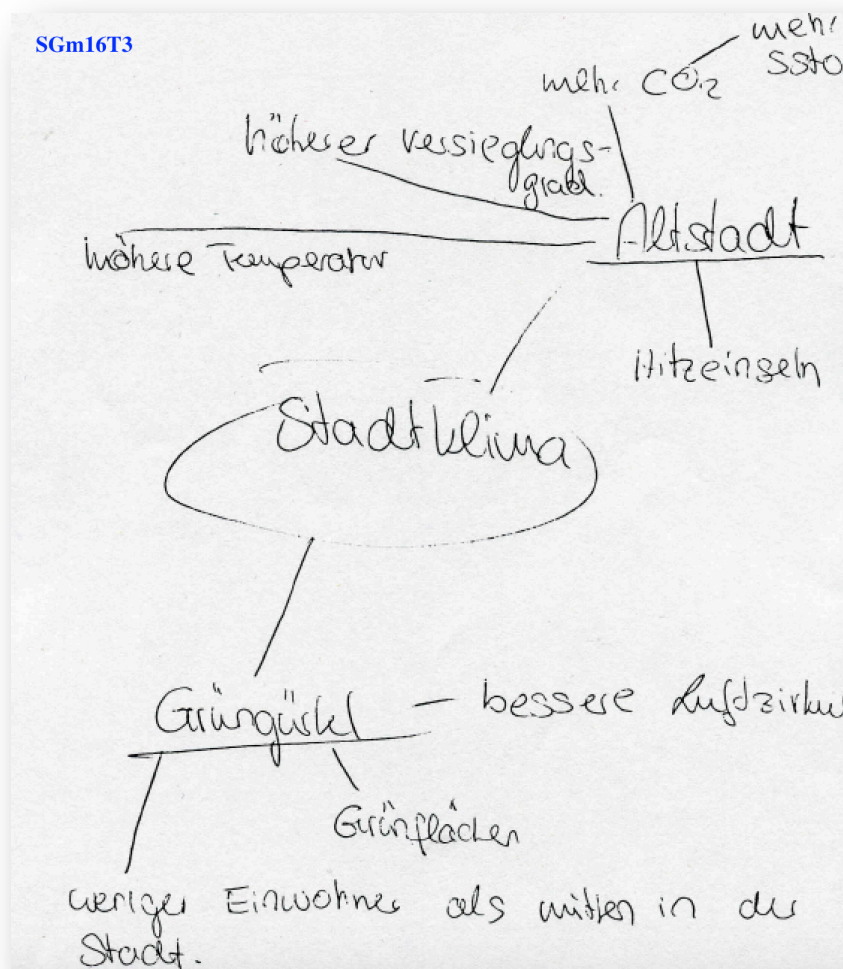 SGm16T3
mehr
mehr CO2
höherer Versieglungs-
grad.
Altstadt
höhere Temperatur
Hitzeinseln
Stadtklima
Grüngürtel
bessere
Grünflächen
weniger Einwohner als mitten in der
Stadt.